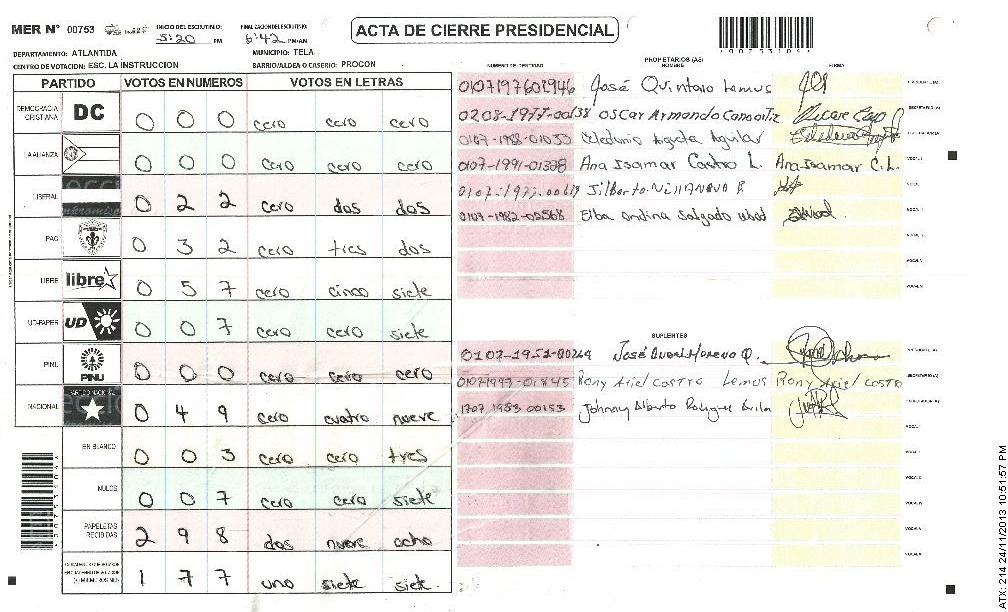 MER Nº 00753 INICIO DEL ESCRUTINIO: 5:20 PM FINALIZACION DEL ESCRUTINIO: 6:42 PM/AM
ACTA DE CIERRE PRESIDENCIAL
DEPARTAMENTO: ATLANTIDA MUNICIPIO: TELA
CENTRO DE VOTACION: ESC. LA INSTRUCCION BARRIO/ALDEA O CASERIO: PROCON
PARTIDO VOTOS EN NUMEROS VOTOS EN LETRAS
DEMOCRACIA CRISTIANA DC 0 0 0 cero cero cero
LA ALIANZA 0 0 0 cero cero cero
LIBERAL 0 2 2 cero dos dos
PAC 0 3 2 cero tres dos
LIBRE libre 0 5 7 cero cinco siete
UD-FAPER UD 0 0 7 cero cero siete
PINU PINU 0 0 0 cero cero cero
NACIONAL PARTIDO NACIONAL 0 4 9 cero cuatro nueve
EN BLANCO 0 0 3 cero cero tres
NULOS 0 0 7 cero cero siete
PAPELETAS RECIBIDAS 2 9 8 dos nueve ocho
1 7 7 uno siete siete
PROPIETARIOS (AS)
NUMERO DE IDENTIDAD NOMBRE FIRMA
0107197601946 José Quintano Lemus
0208-1977-00138 OSCAR Armando
0107-1988-01033 Celedonio Aguilar
0107-1991-01328 Ana Isamar Castro L. Ana Isamar C.L.
0107-1977-00119 Jilberto Villanova R
0107-1982-02568 Elba ondina Salgado
SUPLENTES
0107-1951-00269 José Moreno
Rony Ariel Castro Lemus Rony Ariel Castro
1707 1953 00153 Johnny Alberto Rodriguez
ATX: 214 24/11/2013 10:51:57 PM